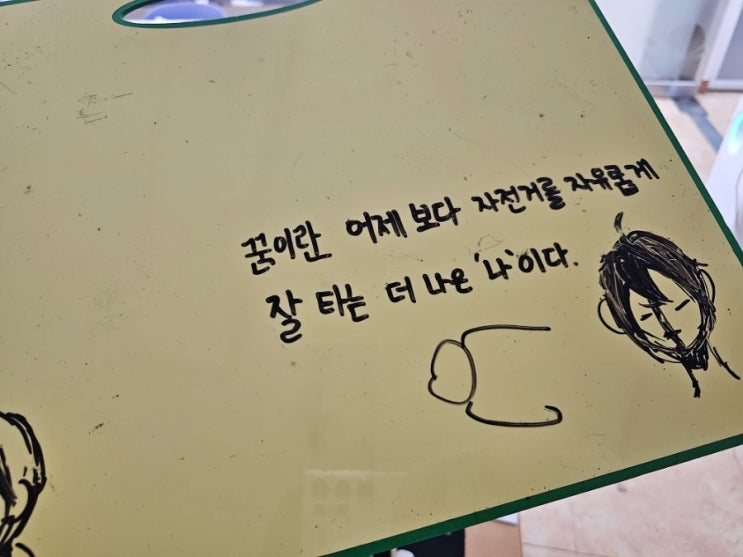 꿈이란 어제 보다 자전거를 자유롭게
잘 타는 더 나은 '나'이다.